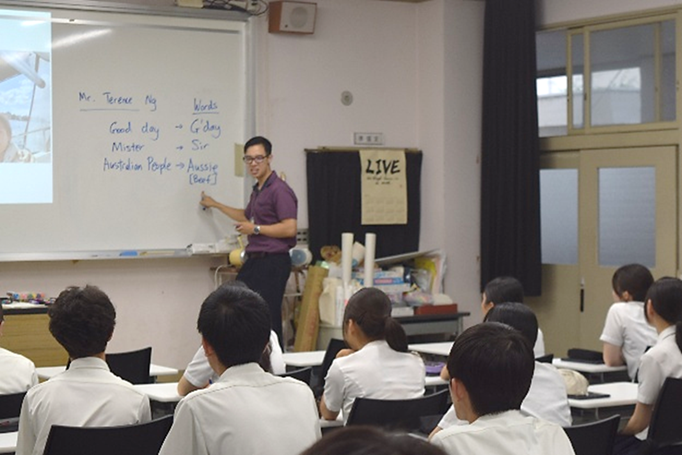 Mr. Terence Ng Words
Good day → G'day
Mister → Sir
Australian People → Aussie
LIVE